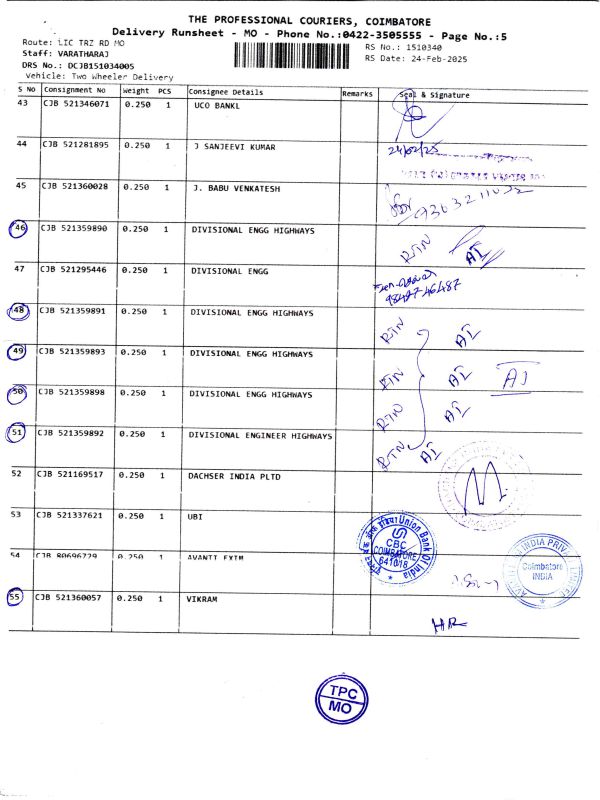 THE PROFESSIONAL COURIERS, COIMBATORE
Delivery Runsheet - MO - Phone No.:0422-3505555 - Page No.:5
Route: LIC TRZ RD MO
RS No.: 1510340
Staff: VARATHARAJ
RS Date: 24-Feb-2025
DRS No.: DCJB151034005
Vehicle: Two Wheeler Delivery
S No Consignment No Weight PCS Consignee Details Remarks Seal & Signature
43 CJB 521346071 0.250 1 UCO BANKL
44 CJB 521281895 0.250 1 J SANJEEVI KUMAR 24/02/25
45 CJB 521360028 0.250 1 J. BABU VENKATESH
46 CJB 521359890 0.250 1 DIVISIONAL ENGG HIGHWAYS RTN AI
47 CJB 521295446 0.250 1 DIVISIONAL ENGG
9842746487
48 CJB 521359891 0.250 1 DIVISIONAL ENGG HIGHWAYS RTN AI
49 CJB 521359893 0.250 1 DIVISIONAL ENGG HIGHWAYS RTN AI AI
50 CJB 521359898 0.250 1 DIVISIONAL ENGG HIGHWAYS RTN AI
51 CJB 521359892 0.250 1 DIVISIONAL ENGINEER HIGHWAYS RTN AI
52 CJB 521169517 0.250 1 DACHSER INDIA PLTD
53 CJB 521337621 0.250 1 UBI
Union Bank Of India
CBC
COIMBATORE
641018
54 CJB 80696729 0.250 1 AVANTI EXIM
INDIA PRIVA
Coimbatore
INDIA
55 CJB 521360057 0.250 1 VIKRAM
HR
TPC
MO